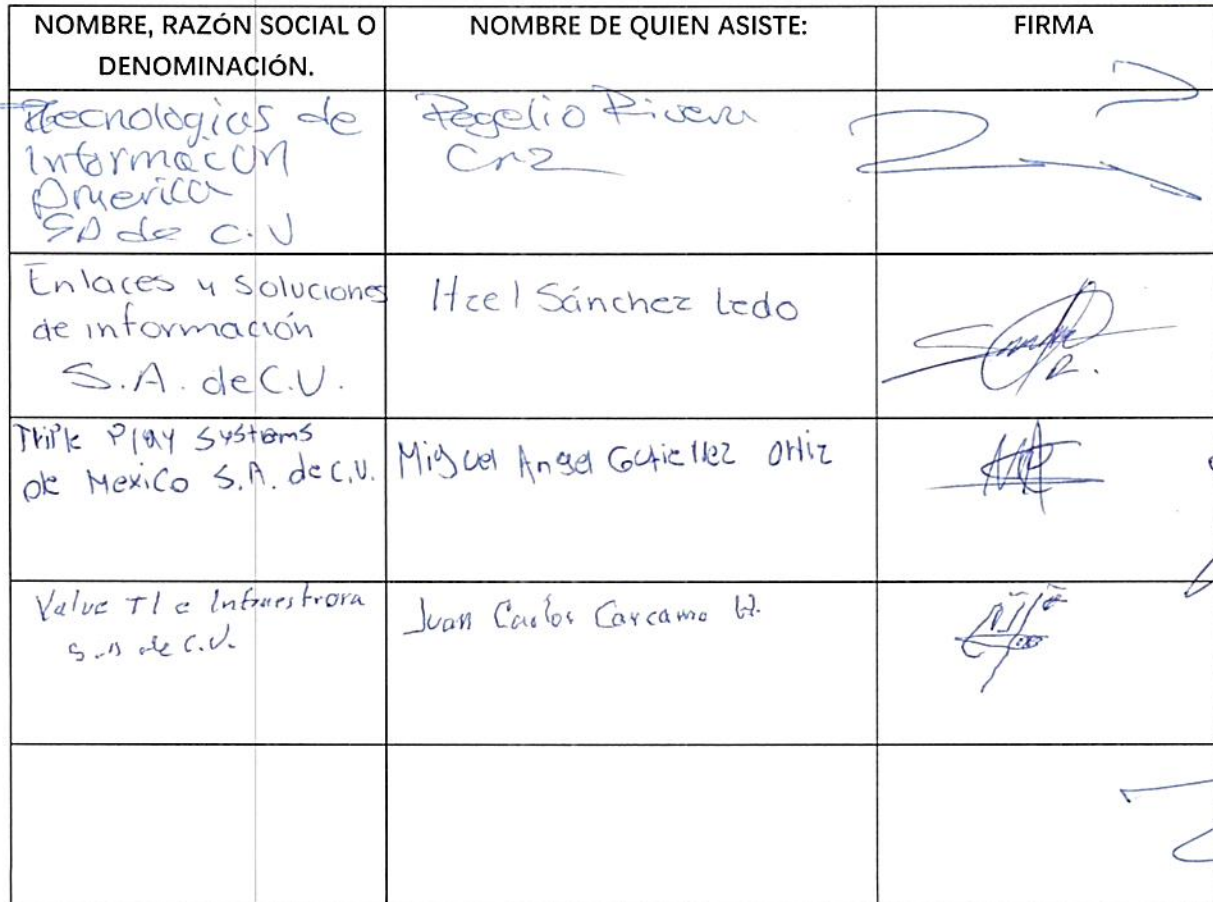 NOMBRE, RAZÓN SOCIAL O
DENOMINACIÓN.
NOMBRE DE QUIEN ASISTE:
FIRMA
Tecnologias de
Informacion
America
SA de C.V
Rogelio Rivera
Crz
Enlaces y Soluciones
de información
S.A. de C.V.
Itzel Sánchez Ledo
Triple Play Systems
de Mexico S.A. de C.V.
Miguel Angel Gutierrez Ortiz
Value TI e Infraestrora
S.A de C.V.
Juan Carlos Carcamo H.